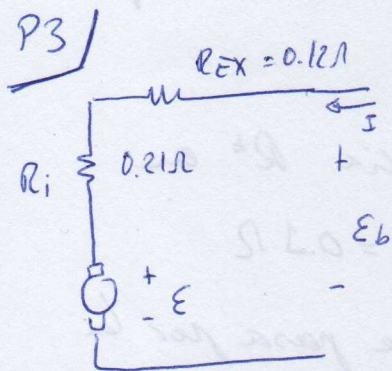 P3
R_EX = 0.12Ω
I
R_i 0.21Ω
+
+
ε
εb
-
-